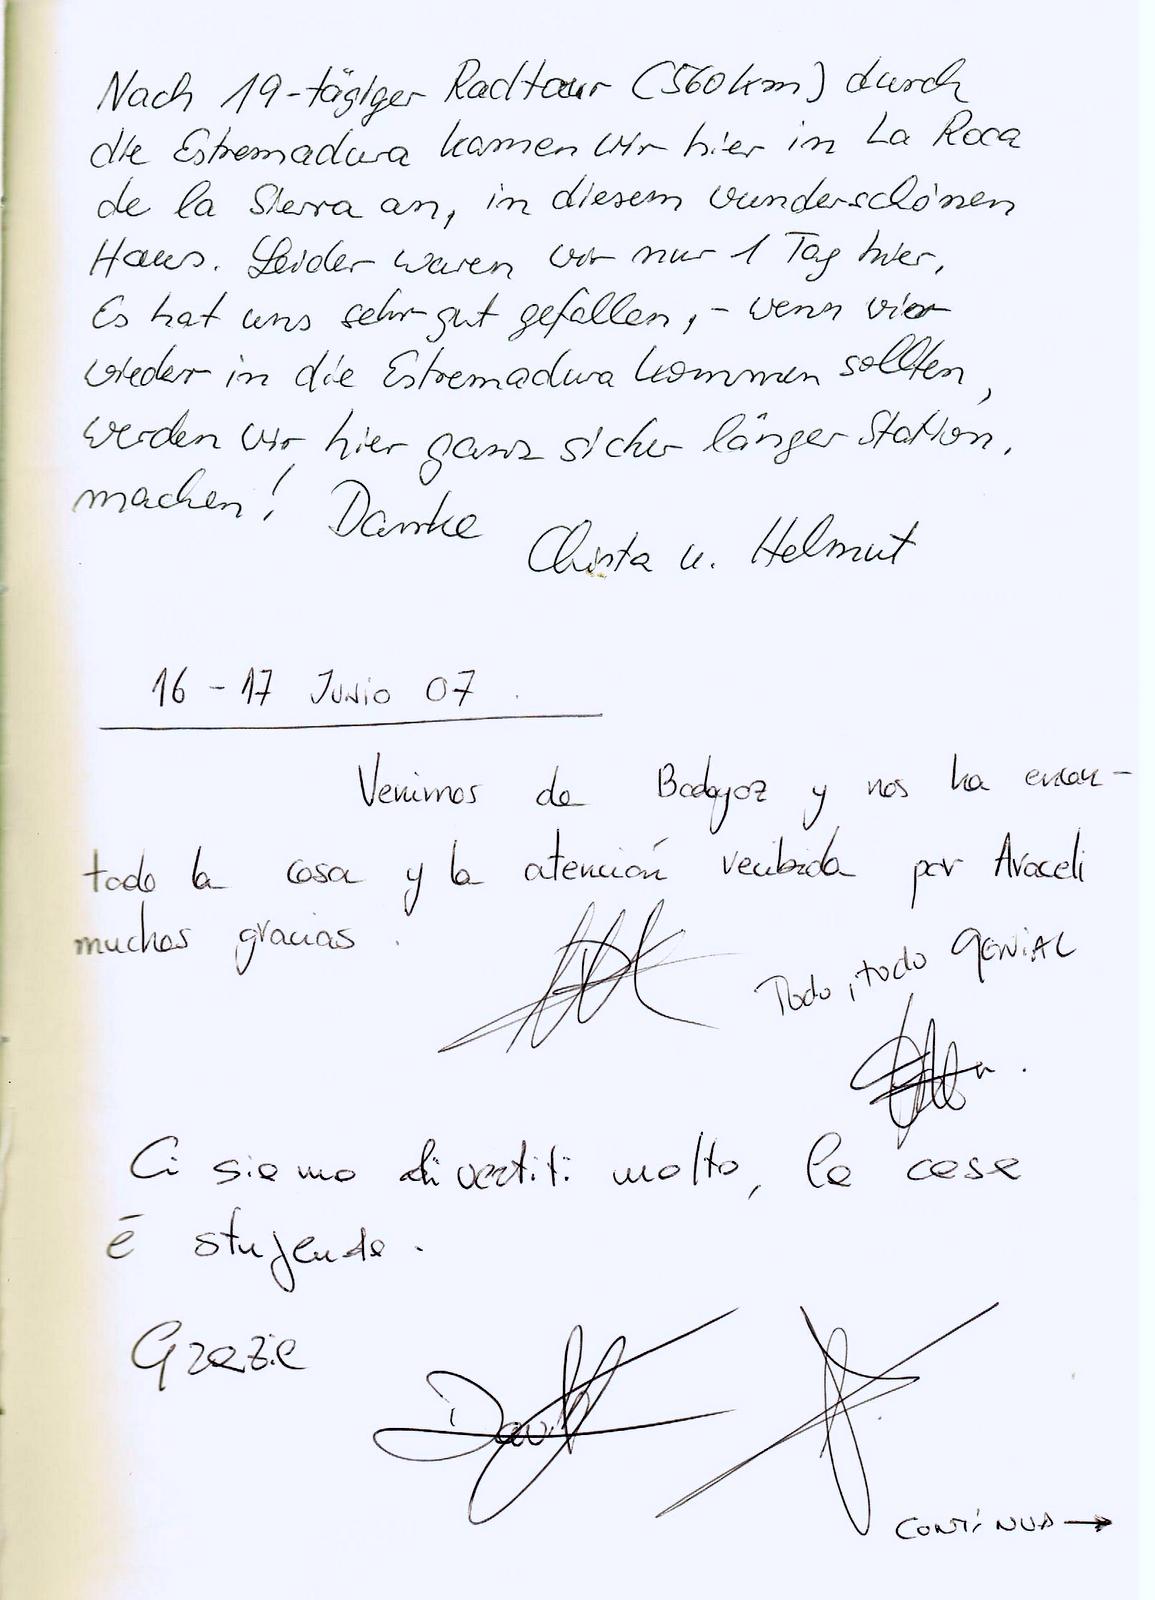 Nach 19-tägiger Radtour (560km) durch
die Estremadura kamen wir hier in La Roca
de la Sierra an, in diesem wunderschönen
Haus. Leider waren wir nur 1 Tag hier.
Es hat uns sehr gut gefallen, - wenn wir
wieder in die Estremadura kommen sollten,
werden wir hier ganz sicher länger Station.
machen! Danke
Christa u. Helmut
16 - 17 Junio 07.
Venimos de Badajoz y nos ha encan-
tado la casa y la atención recibida por Araceli
muchas gracias.
Todo, todo GENIAL
Ci siamo divertiti molto, la casa
è stupenda.
Grazie
David
CONTÍNUA →